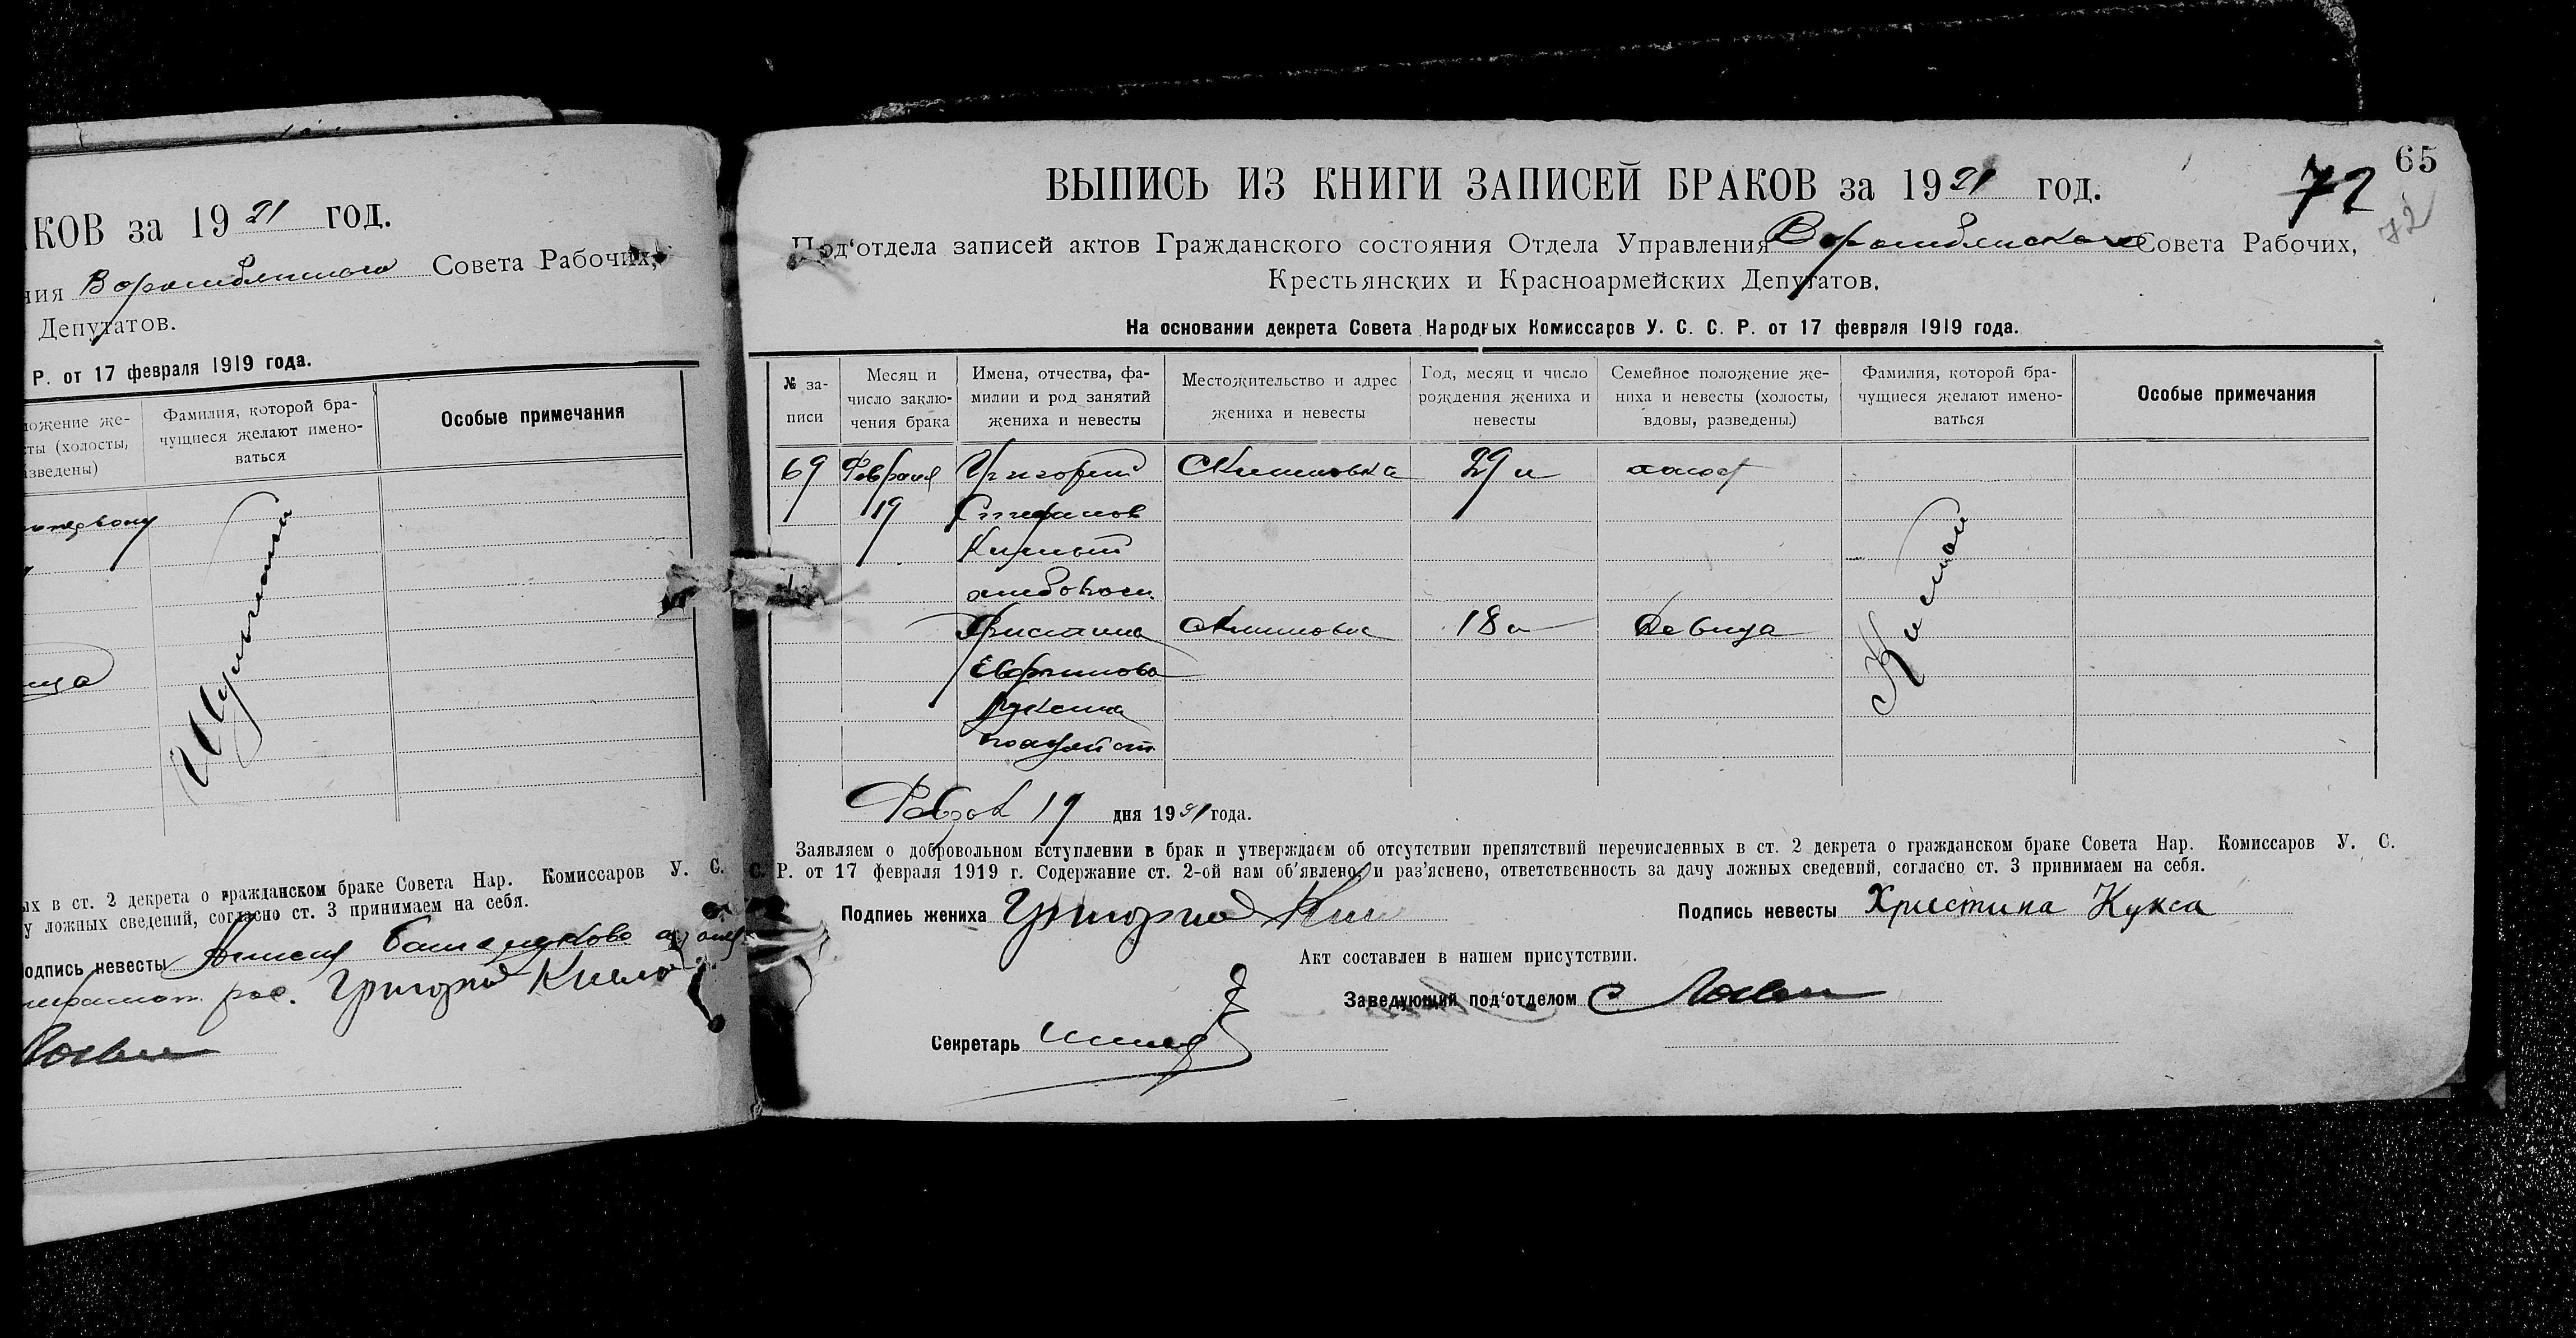 КОВ за 1921 год.
ния Ворожбянского Совета Рабочих,
Депутатов.
Р. от 17 февраля 1919 года.
ложение же-
сты (холосты,
азведены)
Фамилия, которой бра-
чущиеся желают имено-
ваться
Особые примечания
ых в ст. 2 декрета о гражданском браке Совета Нар. Комиссаров У. С.
у ложных сведений, согласно ст. 3 принимаем на себя.
одпись невесты
Григорий
65
72
72
ВЫПИСЬ ИЗ КНИГИ ЗАПИСЕЙ БРАКОВ за 1921 год.
Под'отдела записей актов Гражданского состояния Отдела Управления Ворожбянского Совета Рабочих,
Крестьянских и Красноармейских Депутатов.
На основании декрета Совета Народных Комиссаров У. С. С. Р. от 17 февраля 1919 года.
№ за-
писи
Месяц и
число заклю-
чения брака
Имена, отчества, фа-
милии и род занятий
жениха и невесты
Местожительство и адрес
жениха и невесты
Год, месяц и число
рождения жениха и
невесты
Семейное положение же-
ниха и невесты (холосты,
вдовы, разведены.)
Фамилия, которой бра-
чущиеся желают имено-
ваться
Особые примечания
69 Февраля Григорий 29 л холост
19 Стефанов
хлебопаш.
Христина 18 л Девица
Кукса
Февра 19 дня 1921 года.
Заявляем о добровольном вступлении в брак и утверждаем об отсутствии препятствий перечисленных в ст. 2 декрета о гражданском браке Совета Нар. Комиссаров У. С.
С. Р. от 17 февраля 1919 г. Содержание ст. 2-ой нам об'явлено и раз'яснено, ответственность за дачу ложных сведений, согласно ст. 3 принимаем на себя.
Подпись жениха Григорий
Подпись невесты Христина Кукса
Акт составлен в нашем присутствии.
Заведующий под'отделом
Секретарь